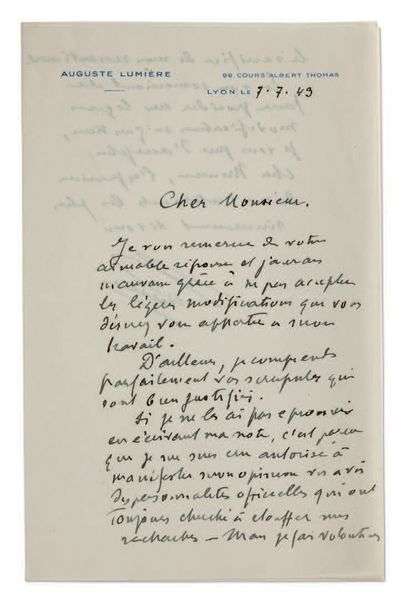 AUGUSTE LUMIÈRE
96 COURS ALBERT THOMAS
LYON LE 7.7.43
Cher Monsieur,
Je vous remercie de votre
aimable réponse et j'aurais
mauvaise grâce à ne pas accepter
les légères modifications que vous
désirez voir apporter à mon
travail.
D'ailleurs, je comprends
parfaitement vos scrupules qui
sont bien justifiés.
Si je ne les ai pas éprouvés
en écrivant ma note, c'est parce
que je me suis cru autorisé à
manifester mon opinion vis à vis
des personnalités officielles qui ont
toujours cherché à étouffer mes
recherches — Mais je fais volontiers